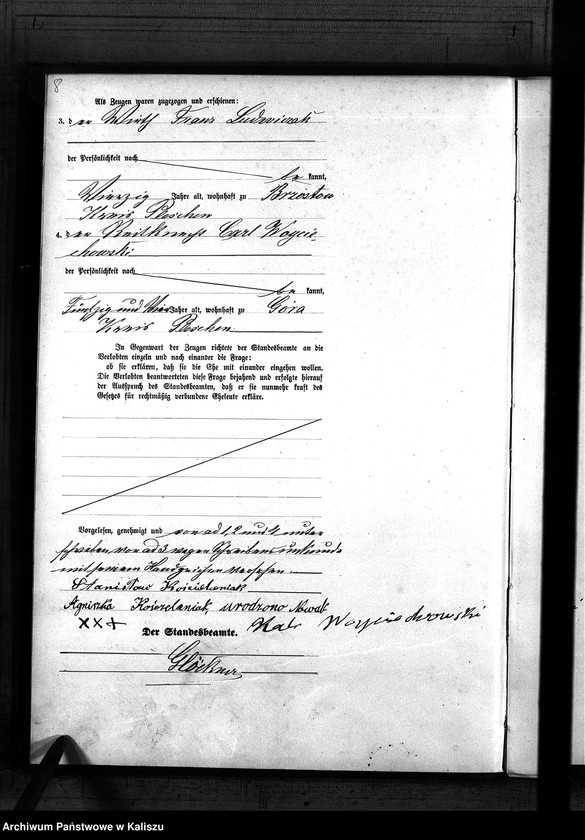 8
Als Zeugen waren zugezogen und erschienen:
3. der Wirth Franz Ludwiczak
der Persönlichkeit nach
be kannt,
Vierzig Jahre alt, wohnhaft zu Brzostow
Kreis Pleschen
4. der Reitknecht Carl Woycie-
chowski
der Persönlichkeit nach
be kannt,
Fünfzig und Jahre alt, wohnhaft zu Góra
Kreis Pleschen
In Gegenwart der Zeugen richtete der Standesbeamte an die
Verlobten einzeln und nach einander die Frage:
ob sie erklären, daß sie die Ehe mit einander eingehen wollen.
Die Verlobten beantworteten diese Frage bejahend und erfolgte hierauf
der Ausspruch des Standesbeamten, daß er sie nunmehr kraft des
Gesetzes für rechtmäßig verbundene Eheleute erkläre.
Vorgelesen, genehmigt und von ad 1, 2 und 4 unter
schrieben, von ad 3 wegen Schreibensunkunde
mit seinem Handzeichen versehen.
Stanisław Kościelniak
Agniszka Kościelniak, urodzono Nowak
XX+
Der Standesbeamte.
Woyciechowski
Glöckner
Archiwum Państwowe w Kaliszu